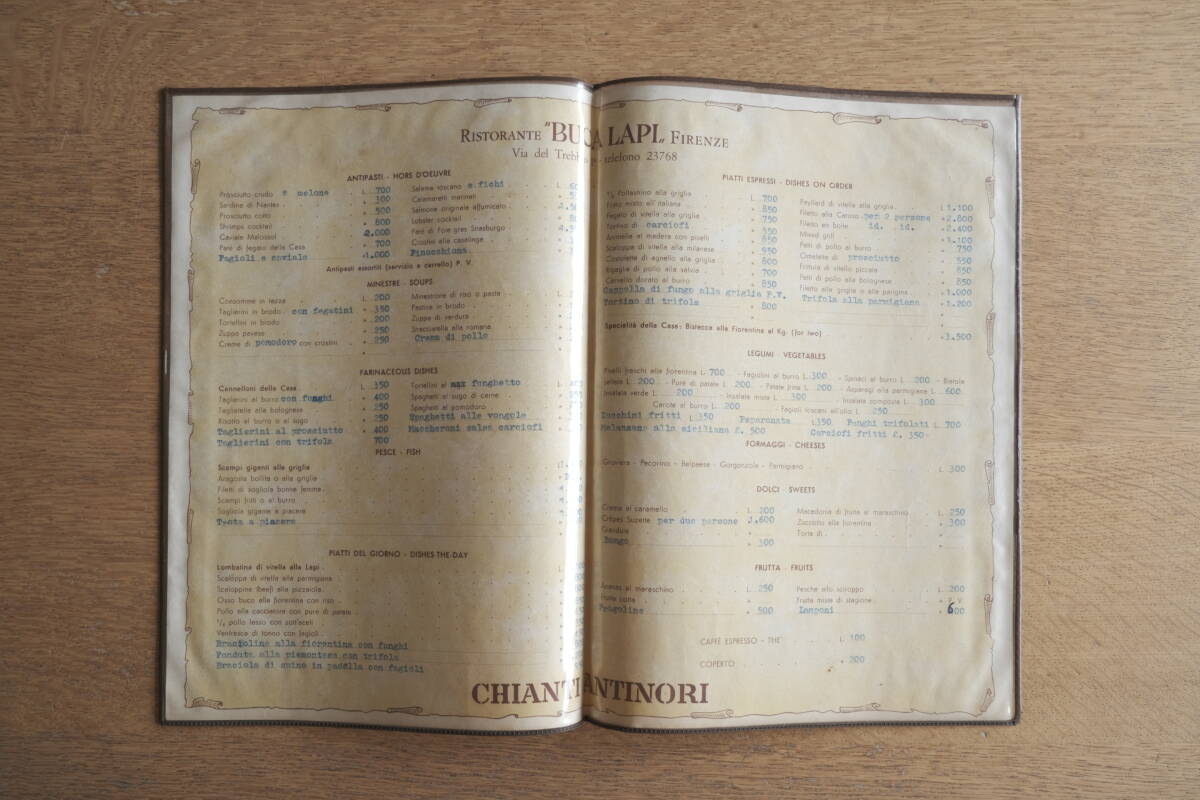 RISTORANTE "BUCA LAPI„ FIRENZE
Via del Treb telefono 23768
ANTIPASTI - HORS D'OEUVRE
Prosciutto crudo e melone L. 700
Sardine di Nantes 300
Prosciutto cotto 500
Shrimps cocktail 800
Caviale Malossol 2.000
Paté di fegato della Casa 700
Fagioli e caviale 1.000
Salame toscano e fichi L.
Calamaretti marinati
Salmone originale affumicato
Lobster cocktail
Paté di Foie gras Strasburgo
Crostini alla casalinga
Finocchiona
Antipasti assortiti (servizio a carrello) P. V.
MINESTRE - SOUPS
Consommé in tazza L. 200
Taglierini in brodo con fegatini 350
Tortellini in brodo 200
Zuppa pavese 250
Crema di pomodoro con crostini 250
Minestrone di riso o pasta
Pastina in brodo
Zuppa di verdura
Stracciatella alla romana
Crema di pollo
FARINACEOUS DISHES
Cannelloni della Casa L. 350
Taglierini al burro con funghi 400
Tagliatelle alla bolognese 250
Risotto al burro o al sugo 250
Taglierini al prosciutto 400
Taglierini con trifola 700
Tortellini al funghetto
Spaghetti al sugo di carne
Spaghetti al pomodoro
Spaghetti alle vongole
Maccheroni salsa carciofi
PESCE - FISH
Scampi giganti alla griglia
Aragosta bollita o alla griglia
Filetti di sogliola bonne femme
Scampi fritti o al burro
Sogliola gigante a piacere
Trota a piacere
PIATTI DEL GIORNO - DISHES-THE-DAY
Lombatina di vitella alla Lapi
Scaloppa di vitella alla parmigiana
Scaloppine (beef) alla pizzaiola
Osso buco alla fiorentina con riso
Pollo alla cacciatora con puré di patate
½ pollo lesso con sott'aceti
Ventresca di tonno con fagioli
Bracioline alla fiorentina con funghi
Fonduta alla piemontese con trifola
Braciola di suino in padella con fagioli
PIATTI ESPRESSI - DISHES ON ORDER
½ Pollastrino alla griglia L. 700
Fritto misto all'italiana 850
Fegato di vitella alla griglia 750
Tortino di carciofi 550
Animelle al madera con piselli 850
Scaloppa di vitella alla milanese 950
Costolette di agnello alla griglia 800
Rigaglie di pollo alla salvia 700
Cervello dorato al burro 850
Cappella di fungo alla griglia P.V.
Tortino di trifola 800
Paillard di vitella alla griglia L. 1.100
Filetto alla Carlton per 2 persone 2.800
Filetto en boite id. id. 2.400
Mixed grill 1.100
Petti di pollo al burro 750
Omelette di prosciutto 550
Frittura di vitella piccata 850
Petti di pollo alla bolognese 850
Filetto alla griglia o alla parigina 1.000
Trifola alla parmigiana 1.200
Specialità della Casa: Bistecca alla Fiorentina al Kg. (for two) 3.500
LEGUMI - VEGETABLES
Piselli freschi alla fiorentina L. 700 - Fagiolini al burro L. 300 - Spinaci al burro L. 200 - Bietola
saltata L. 200 - Puré di patate L. 200 - Patate fritte L. 200 - Asparagi alla parmigiana L. 600
Insalata verde L. 200 - Insalata mista L. 300 - Insalata composta L. 300
Carote al burro L. 200 - Fagioli toscani all'olio L. 250
Zucchini fritti L. 350 Peperonata L. 350 Funghi trifolati L. 700
Melanzane alla siciliana £. 500 Carciofi fritti £. 350
FORMAGGI - CHEESES
Groviera - Pecorino - Belpaese - Gorgonzola - Parmigiano L. 300
DOLCI - SWEETS
Crema al caramello L. 200
Crêpes Suzette per due persone 1.600
Gianduia
Bongo 300
Macedonia di frutta al maraschino L. 250
Zuccotto alla fiorentina 300
Torta di
FRUTTA - FRUITS
Ananas al maraschino L. 250
Frutta cotta
Fragoline 500
Pesche allo sciroppo L. 200
Frutta mista di stagione P. V.
Lamponi 600
CAFFÈ ESPRESSO - THE' L. 100
COPERTO 200
CHIANTI ANTINORI